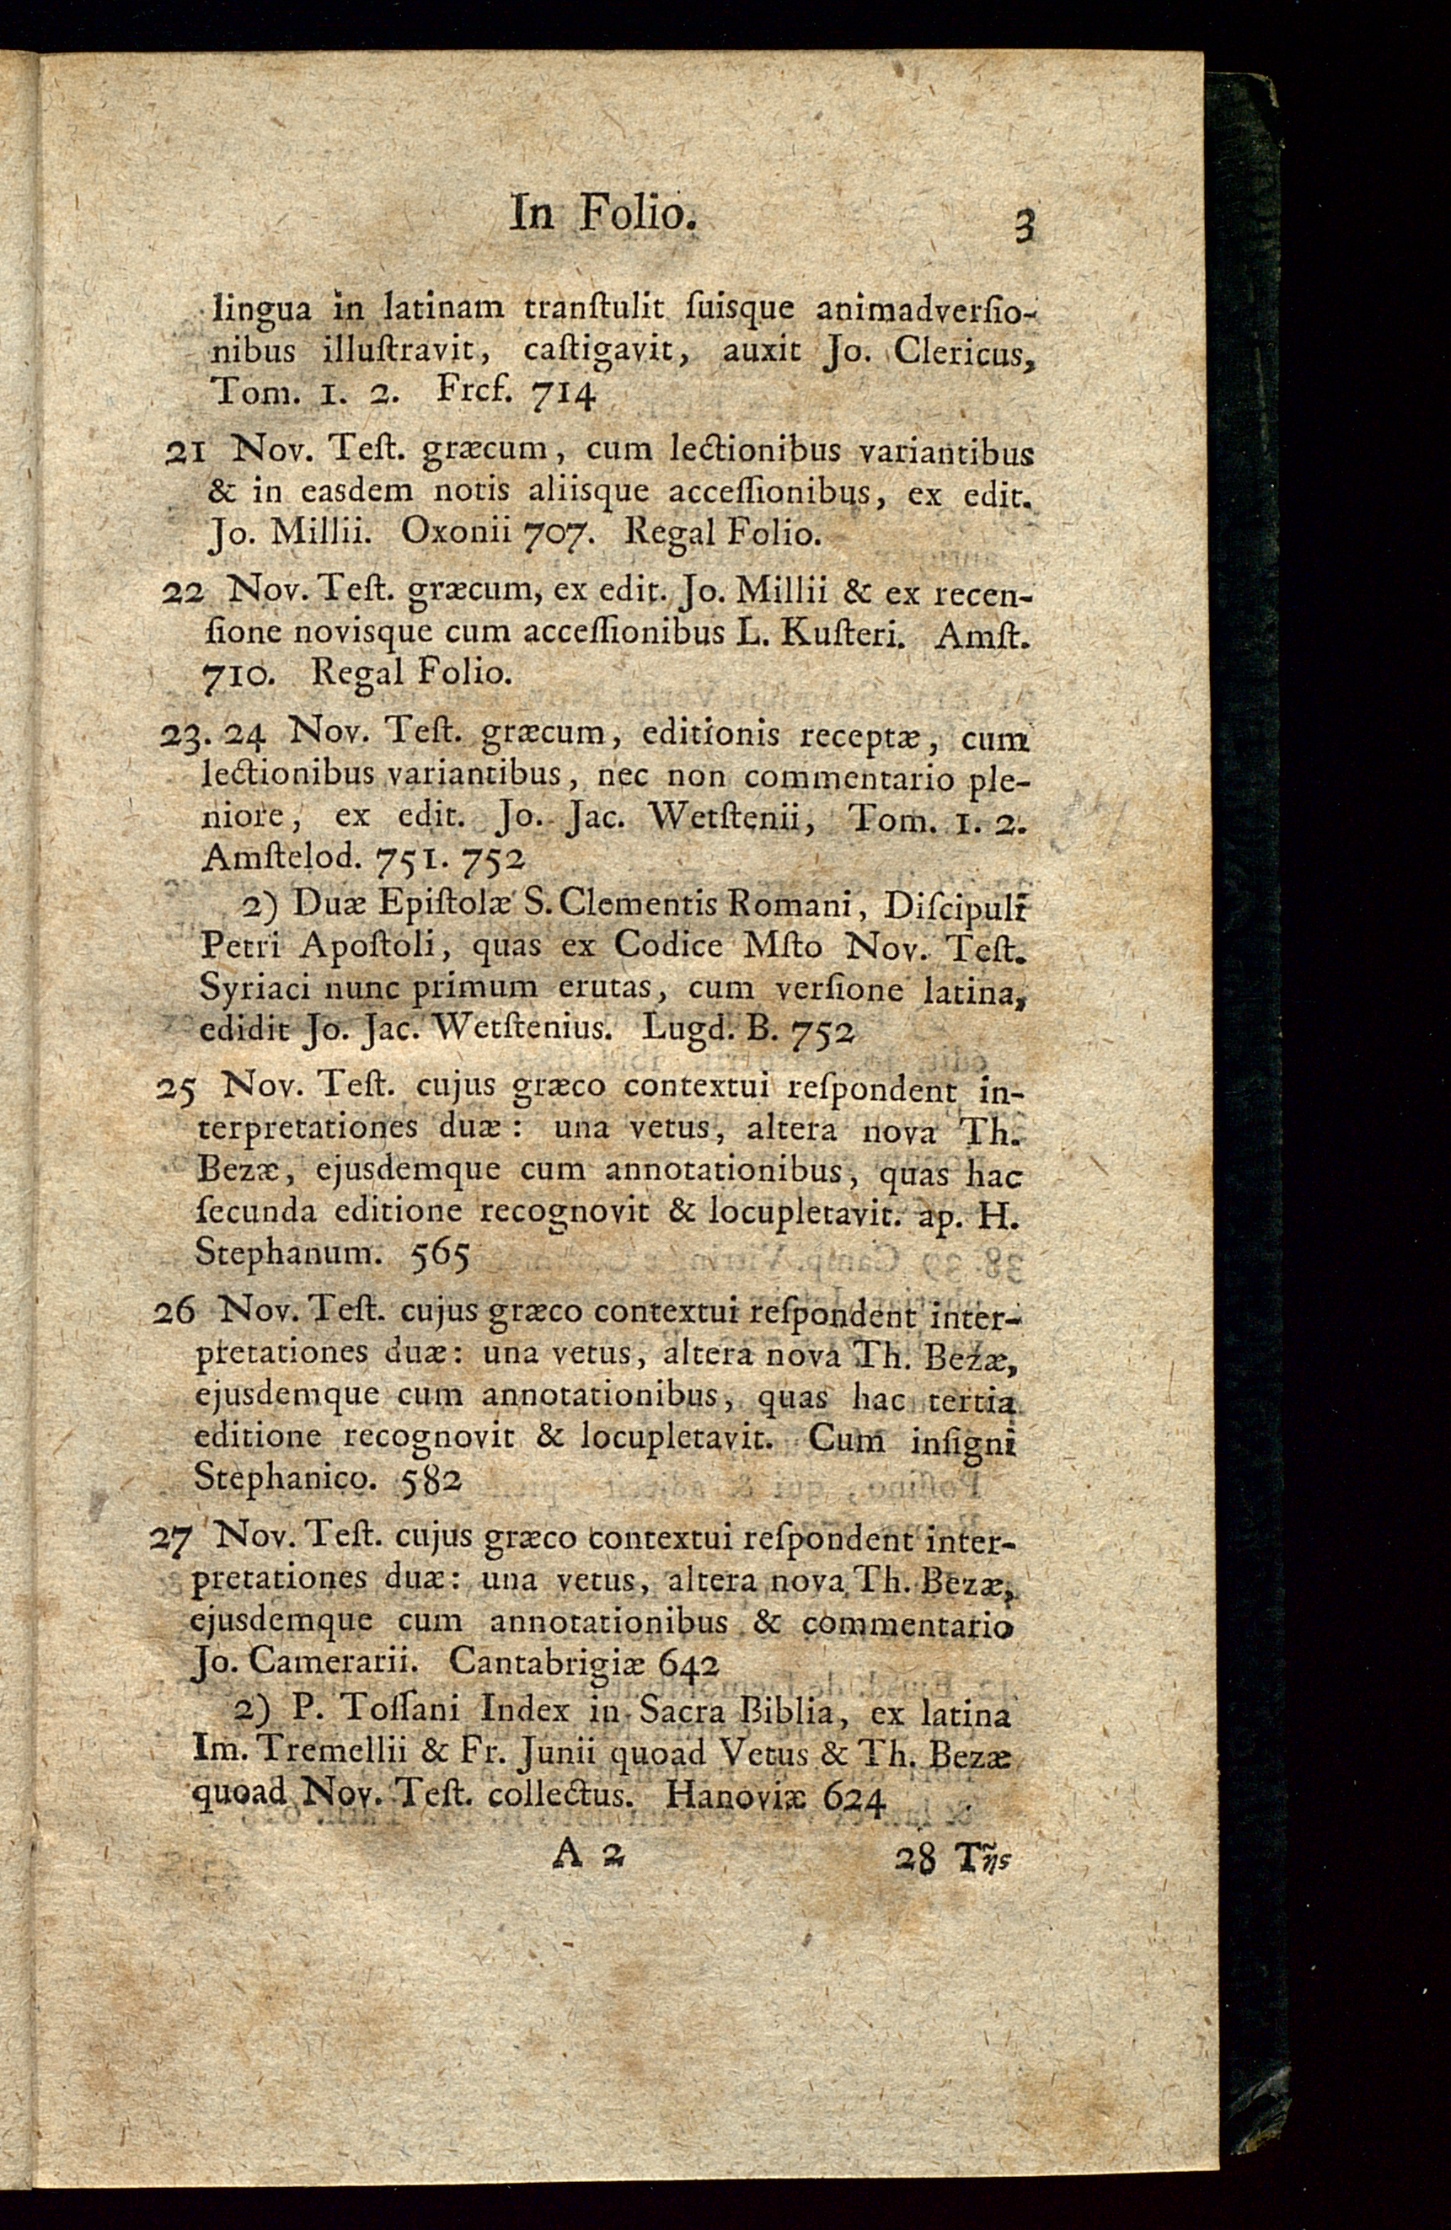 In Folio.
3
lingua in latinam tranſtulit ſuisque animadverſio-
nibus illuſtravit, caſtigavit, auxit Jo. Clericus,
Tom. 1. 2. Frcf. 714
21 Nov. Teſt. græcum, cum lectionibus variantibus
& in easdem notis aliisque acceſſionibus, ex edit.
Jo. Millii. Oxonii 707. Regal Folio.
22 Nov. Teſt. græcum, ex edit. Jo. Millii & ex recen-
ſione novisque cum acceſſionibus L. Kuſteri. Amſt.
710. Regal Folio.
23. 24 Nov. Teſt. græcum, editionis receptæ, cum
lectionibus variantibus, nec non commentario ple-
niore, ex edit. Jo. Jac. Wetſtenii, Tom. 1. 2.
Amſtelod. 751. 752
2) Duæ Epiſtolæ S. Clementis Romani, Diſcipuli
Petri Apoſtoli, quas ex Codice Mſto Nov. Teſt.
Syriaci nunc primum erutas, cum verſione latina,
edidit Jo. Jac. Wetſtenius. Lugd. B. 752
25 Nov. Teſt. cujus græco contextui reſpondent in-
terpretationes duæ: una vetus, altera nova Th.
Bezæ, ejusdemque cum annotationibus, quas hac
ſecunda editione recognovit & locupletavit. ap. H.
Stephanum. 565
26 Nov. Teſt. cujus græco contextui reſpondent inter-
pretationes duæ: una vetus, altera nova Th. Bezæ,
ejusdemque cum annotationibus, quas hac tertia
editione recognovit & locupletavit. Cum inſigni
Stephanico. 582
27 Nov. Teſt. cujus græco contextui reſpondent inter-
pretationes duæ: una vetus, altera nova Th. Bezæ,
ejusdemque cum annotationibus & commentario
Jo. Camerarii. Cantabrigiæ 642
2) P. Toſſani Index in Sacra Biblia, ex latina
Im. Tremellii & Fr. Junii quoad Vetus & Th. Bezæ
quoad Nov. Teſt. collectus. Hanoviæ 624
A 2
28 Τῆς